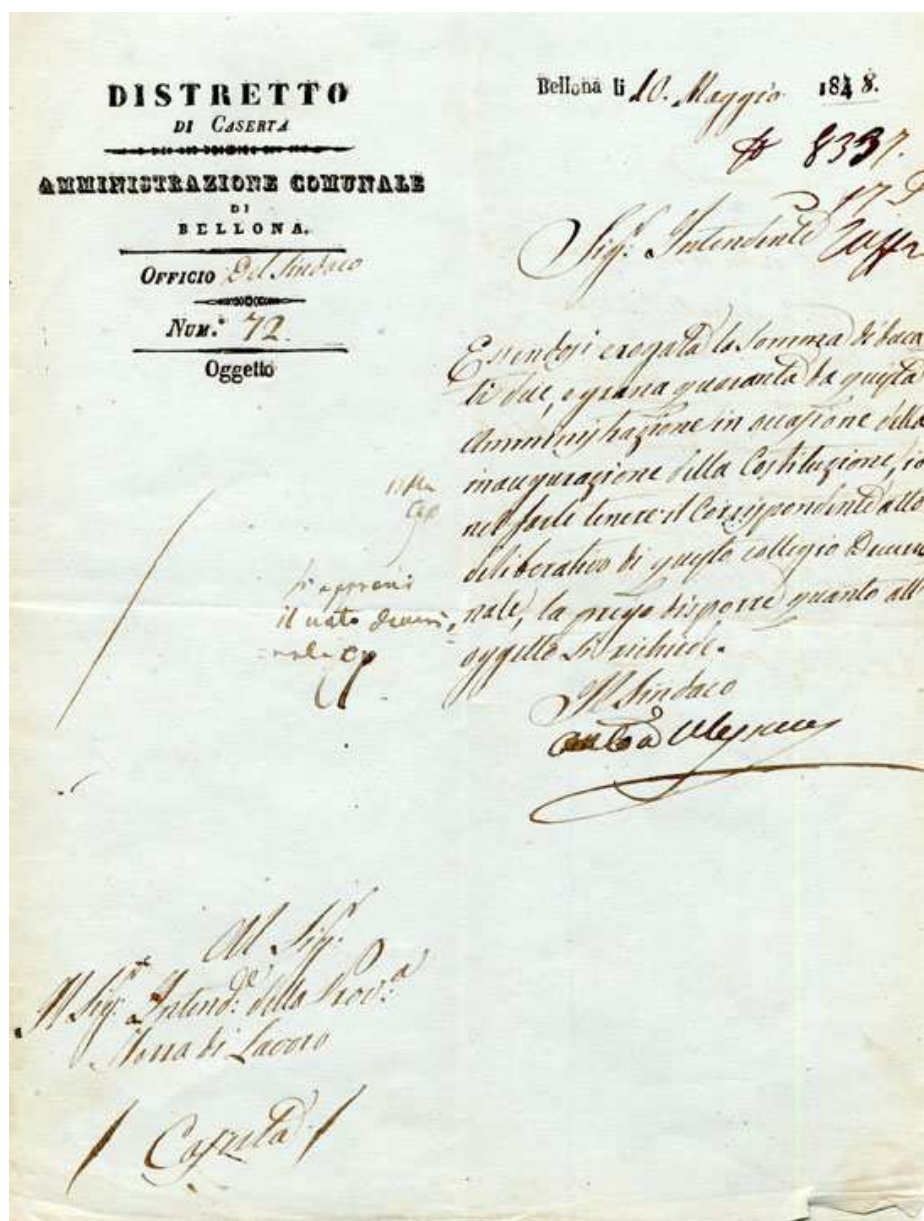 DISTRETTO
DI CASERTA
AMMINISTRAZIONE COMUNALE
DI
BELLONA.
OFFICIO Del Sindaco
NUM.° 72
Oggetto
Bellona li 10. Maggio 1848.
8337.
Sigr. Intendente
Essendosi erogata la somma di duca
ti due, e grana quaranta da questa
Amministrazione in occasione della
inaugurazione della Costituzione, io
nel farle tenere il corrispondente atto
deliberativo di questo collegio Decurio
nale, la prego disporre quanto all
oggetto si richiede.
Il Sindaco
Si approvi
il voto decurio
nale
Al Sigr.
Il Sigr. Intende. della Prova.
Terra di Lavoro
Caserta